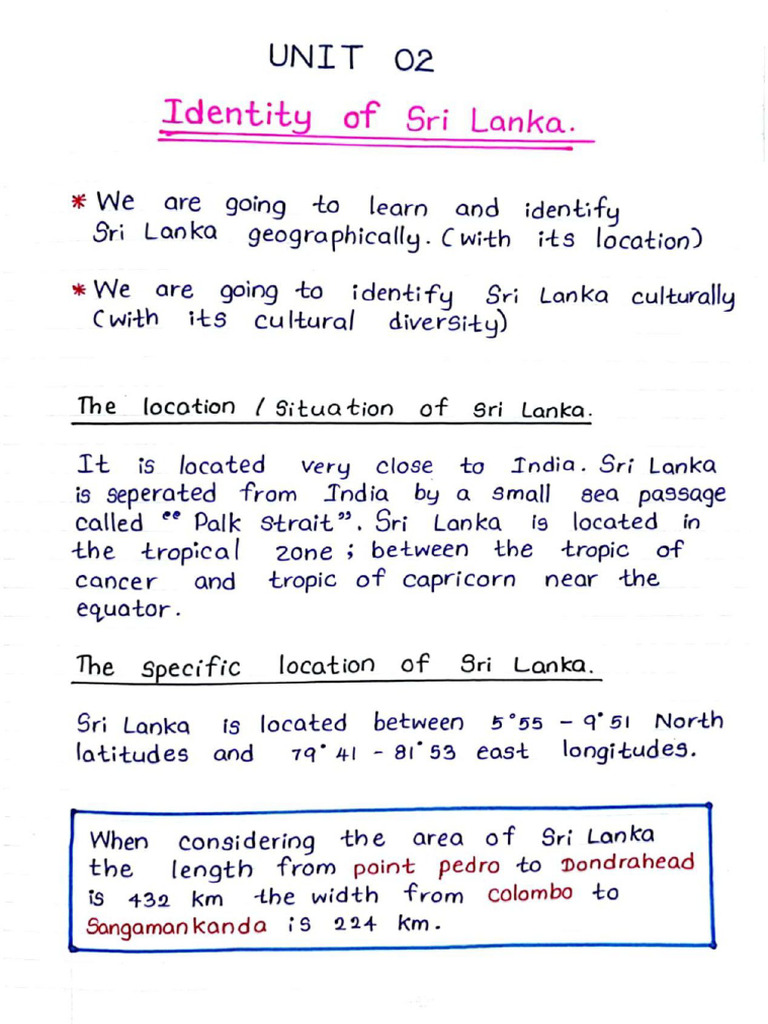 UNIT 02
Identity of Sri Lanka.
* We are going to learn and identify
Sri Lanka geographically. (with its location)
* We are going to identify Sri Lanka culturally
(with its cultural diversity)
The location / Situation of Sri Lanka.
It is located very close to India. Sri Lanka
is seperated from India by a small sea passage
called "Palk strait". Sri Lanka is located in
the tropical zone ; between the tropic of
cancer and tropic of capricorn near the
equator.
The specific location of Sri Lanka.
Sri Lanka is located between 5°55 - 9°51 North
latitudes and 79° 41 - 81° 53 east longitudes.
When considering the area of Sri Lanka
the length from point pedro to Dondrahead
is 432 km the width from colombo to
Sangamankanda is 224 km.